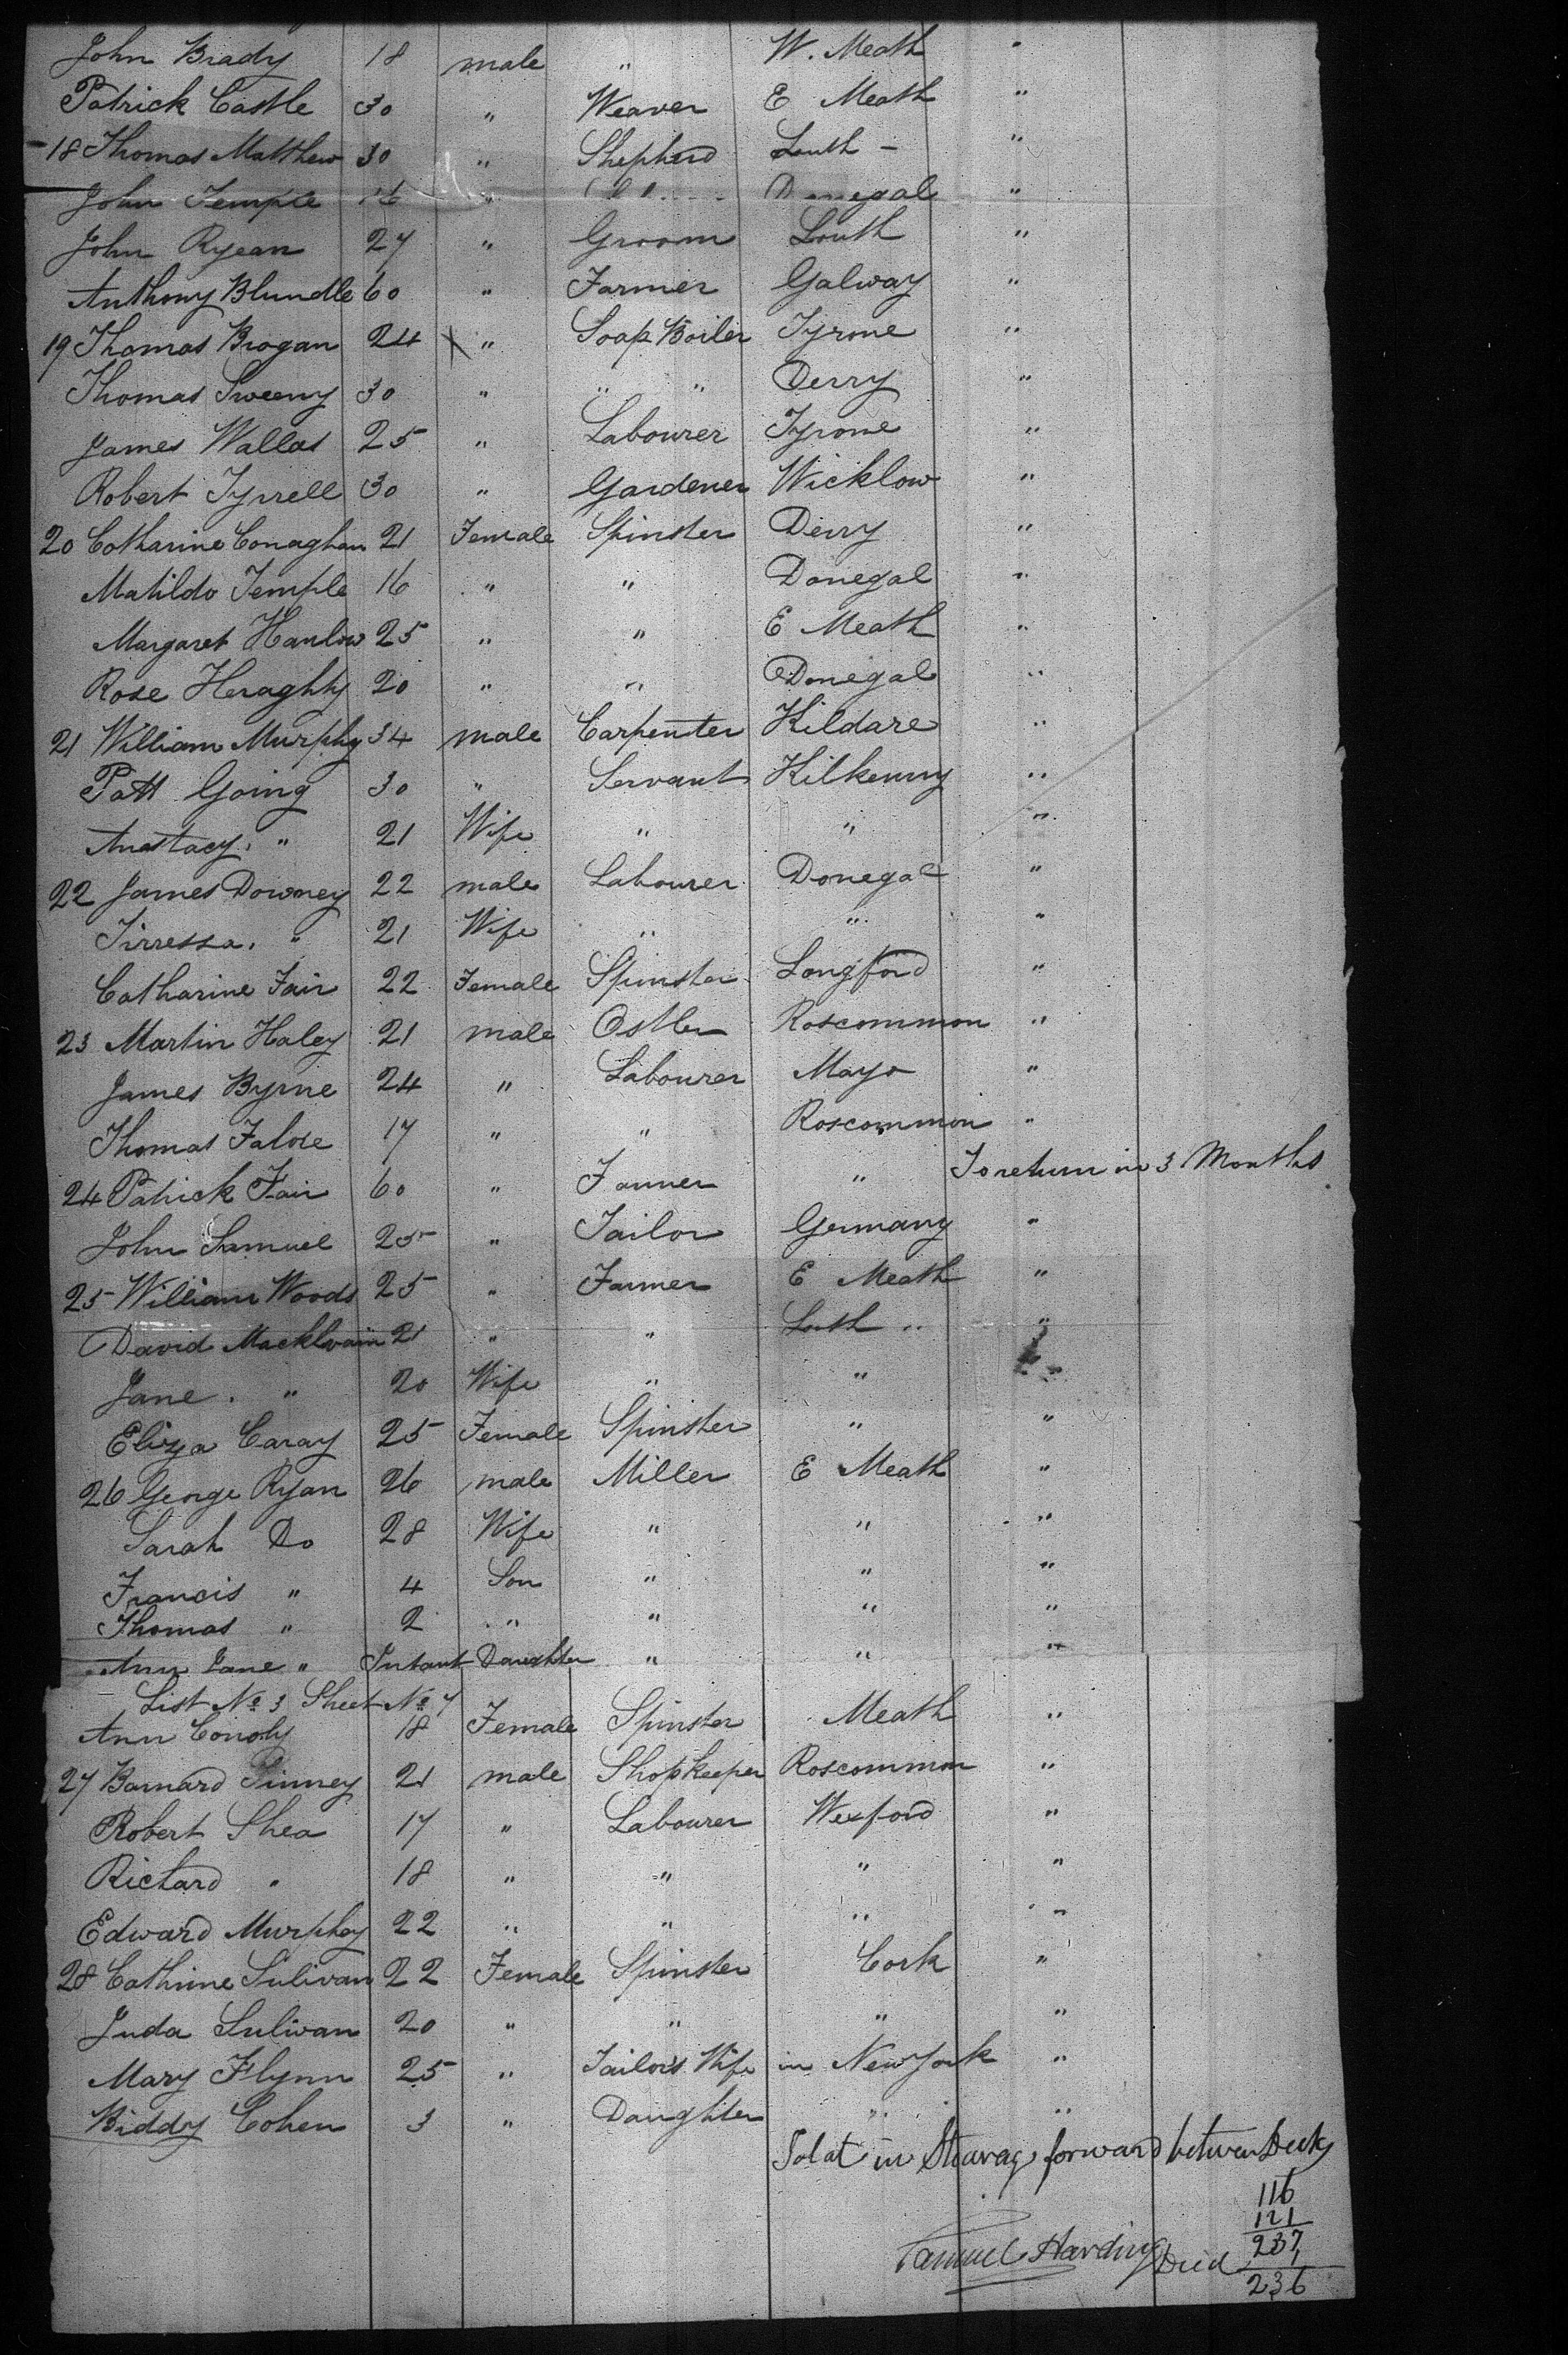 John Brady 18 male " W. Meath "
Patrick Castle 30 " Weaver E Meath "
18 Thomas Matthew 30 " Shepherd Louth - "
John Temple 16 " Donegal "
John Ryean 27 " Groom Louth "
Anthony Blundle 60 " Farmer Galway "
19 Thomas Brogan 24 " Soap Boiler Tyrone "
Thomas Sweeny 30 " " " Derry "
James Wallas 25 " Labourer Tyrone "
Robert Tyrrell 30 " Gardener Wicklow "
20 Catharine Conaghan 21 Female Spinster Derry "
Matilda Temple 16 " " Donegal "
Margaret Hanlow 25 " " E Meath "
Rose Heraghty 20 " " Donegal "
21 William Murphy 34 male Carpenter Kildare "
Patt Going 30 " Servant Kilkenny "
Anastacy " 21 Wife " " "
22 James Downey 22 male Labourer Donegal "
Tirressa " 21 Wife " " "
Catharine Fair 22 Female Spinster Longford "
23 Martin Haley 21 male Ostler Roscommon "
James Byrne 24 " Labourer Mayo "
Thomas 17 " " Roscommon "
24 Patrick Fair 60 " Farmer " To return in 3 Months
John Samuel 25 " Tailor Germany "
25 William Woods 25 " Farmer E Meath "
David Macklwain 21 " " Louth " "
Jane " 20 Wife " "
Eliza Caray 25 Female Spinster " "
26 George Ryan 26 male Miller E Meath "
Sarah Do 28 Wife " " "
Francis " 4 Son " " "
Thomas " 2 " " " "
Ann Jane " Infant Daughter " " "
List No 3 Sheet No 7
Ann Conoly 18 Female Spinster Meath "
27 Barnard Finney 21 male Shopkeeper Roscommon "
Robert Shea 17 " Labourer Wexford "
Richard " 18 " " " "
Edward Murphey 22 " " " "
28 Cathrine Sulivan 22 Female Spinster Cork "
Juda Sulivan 20 " " " "
Mary Flynn 25 " Tailors Wife in New York "
Biddy Cohen 3 " Daughter " "
in Stearag forward between Decks
116
121
237
Samuel Harding Died 1
236